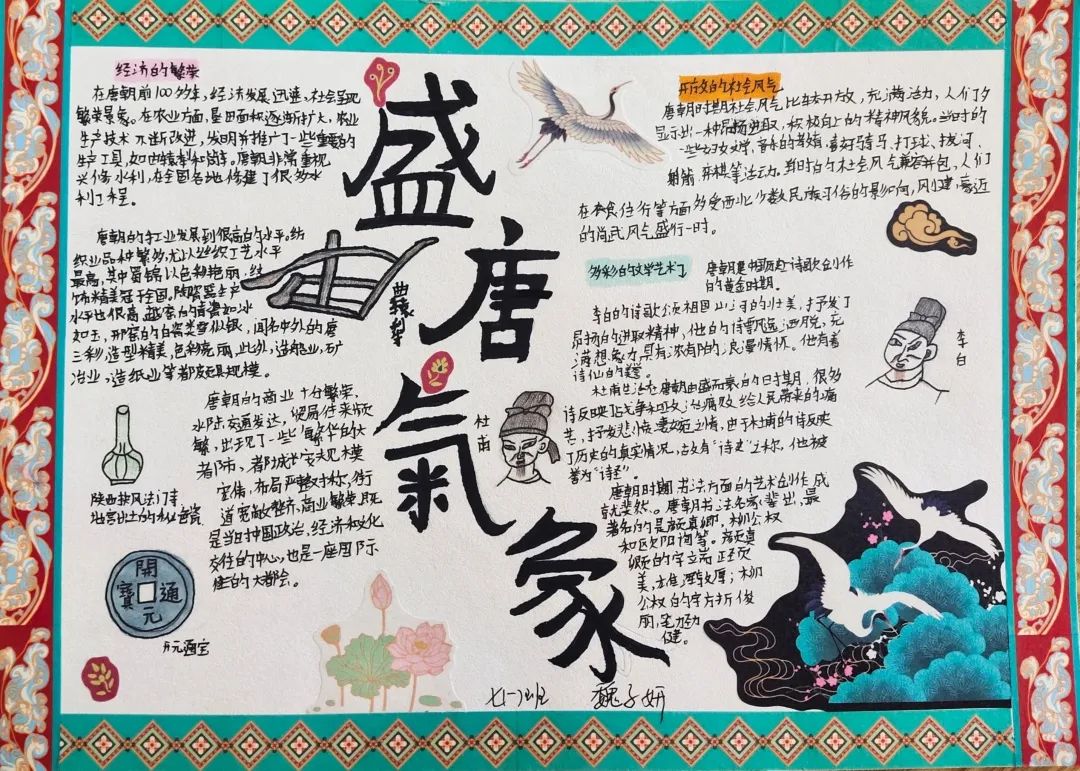 盛唐氣象
经济的繁荣
在唐朝前100多年,经济发展迅速,社会呈现
繁荣景象。在农业方面,垦田面积逐渐扩大,农业
生产技术不断改进,发明并推广了一些重要的
生产工具,如曲辕犁和筒车。唐朝非常重视
兴修水利,在全国各地修建了很多水
利工程。
唐朝的手工业发展到很高的水平。纺
织业品种繁多,尤以丝织工艺水平
最高,其中蜀锦以色彩艳丽,纹
饰精美冠于全国。陶瓷器生产
水平也很高,越窑的青瓷如冰
如玉,邢窑的白瓷类雪似银,闻名中外的唐
三彩,造型精美,色彩亮丽,此外,造船业,矿
冶业,造纸业等都颇具规模。
曲辕犁
唐朝的商业十分繁荣,
水陆交通发达,贸易往来频
繁,出现了一些繁华的大
都市,都城长安规模
宏伟,布局严整对称,街
道宽敞整齐,商业繁荣,既
是当时中国政治,经济和文化
交往的中心,也是一座国际
性的大都会。
陕西扶风法门寺
地宫出土的秘色瓷
開元通寶
开元通宝
开放的社会风气
唐朝时期社会风气比较开放,充满活力,人们多
显示出一种昂扬进取,积极向上的精神风貌。当时的
一些妇女
骑马、打球、拔河、
射箭、下棋等活动。当时的社会风气兼容并包,人们
在衣食住行等方面多受西北少数民族习俗的影响,风
的尚武风气盛行一时。
多彩的文学艺术
唐朝是中国历史诗歌创作
的黄金时期。
李白的诗歌歌颂祖国山河的壮美,抒发了
昂扬的进取精神,他的诗飘逸洒脱,充
满想象力,具有浓郁的浪漫情怀。他有着
诗仙的美誉。
李白
杜甫生活在唐朝由盛而衰的时期,很多
诗反映了战争和政治腐败给人民带来的痛
苦,抒发悲愤凄婉之情,由于杜甫的诗反映
了历史的真实情况,故有“诗史”之称,他被
誉为“诗圣”。
杜甫
唐朝时期书法方面的艺术创作成
就斐然。唐朝书法名家辈出,最
著名的是颜真卿、柳公权
和欧阳询等。颜真
卿的字端正
美,雄浑敦厚;柳
公权的字方折俊
丽,笔力劲
健。
七(一)班 魏子妍